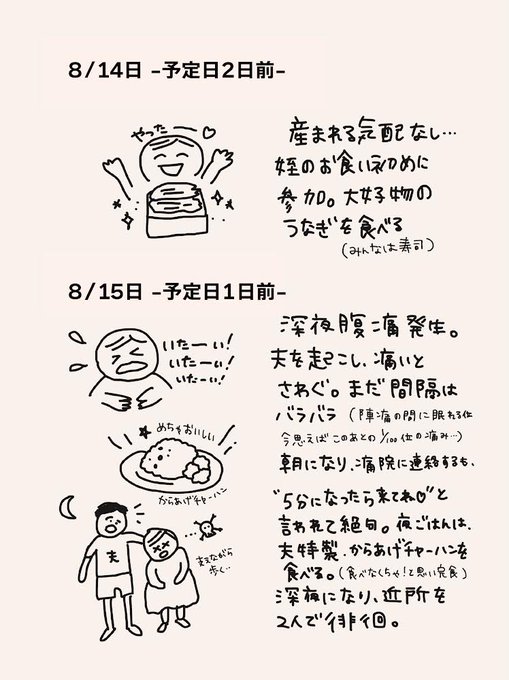 8/14日 -予定日2日前-
やったー♡
産まれる気配なし…
姪のお食い初めに
参加。大好物の
うなぎを食べる
(みんなは寿司)
8/15日 -予定日1日前-
いたーい!
いたーい!
いたーい!
深夜腹痛発生。
夫を起こし、痛いと
さわぐ。まだ間隔は
バラバラ(陣痛の間に眠れる位
今思えばこのあとの1/100位の痛み…)
めちゃおいしい
からあげチャーハン
朝になり、病院に連絡するも、
"5分になったら来てね♡"と
言われて絶句。夜ごはんは、
夫特製、からあげチャーハンを
食べる。(食べなくちゃ!と思い完食)
深夜になり、近所を
2人で徘徊。
夫
支えながら
歩く…